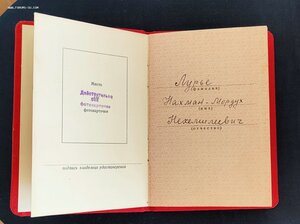 Место
Действительно
без
фотокарточки
фотокарточки
подпись владельца удостоверения
Лурье
(ФАМИЛИЯ)
Нахман-Мордух
(ИМЯ)
Нехемилеевич
(ОТЧЕСТВО)